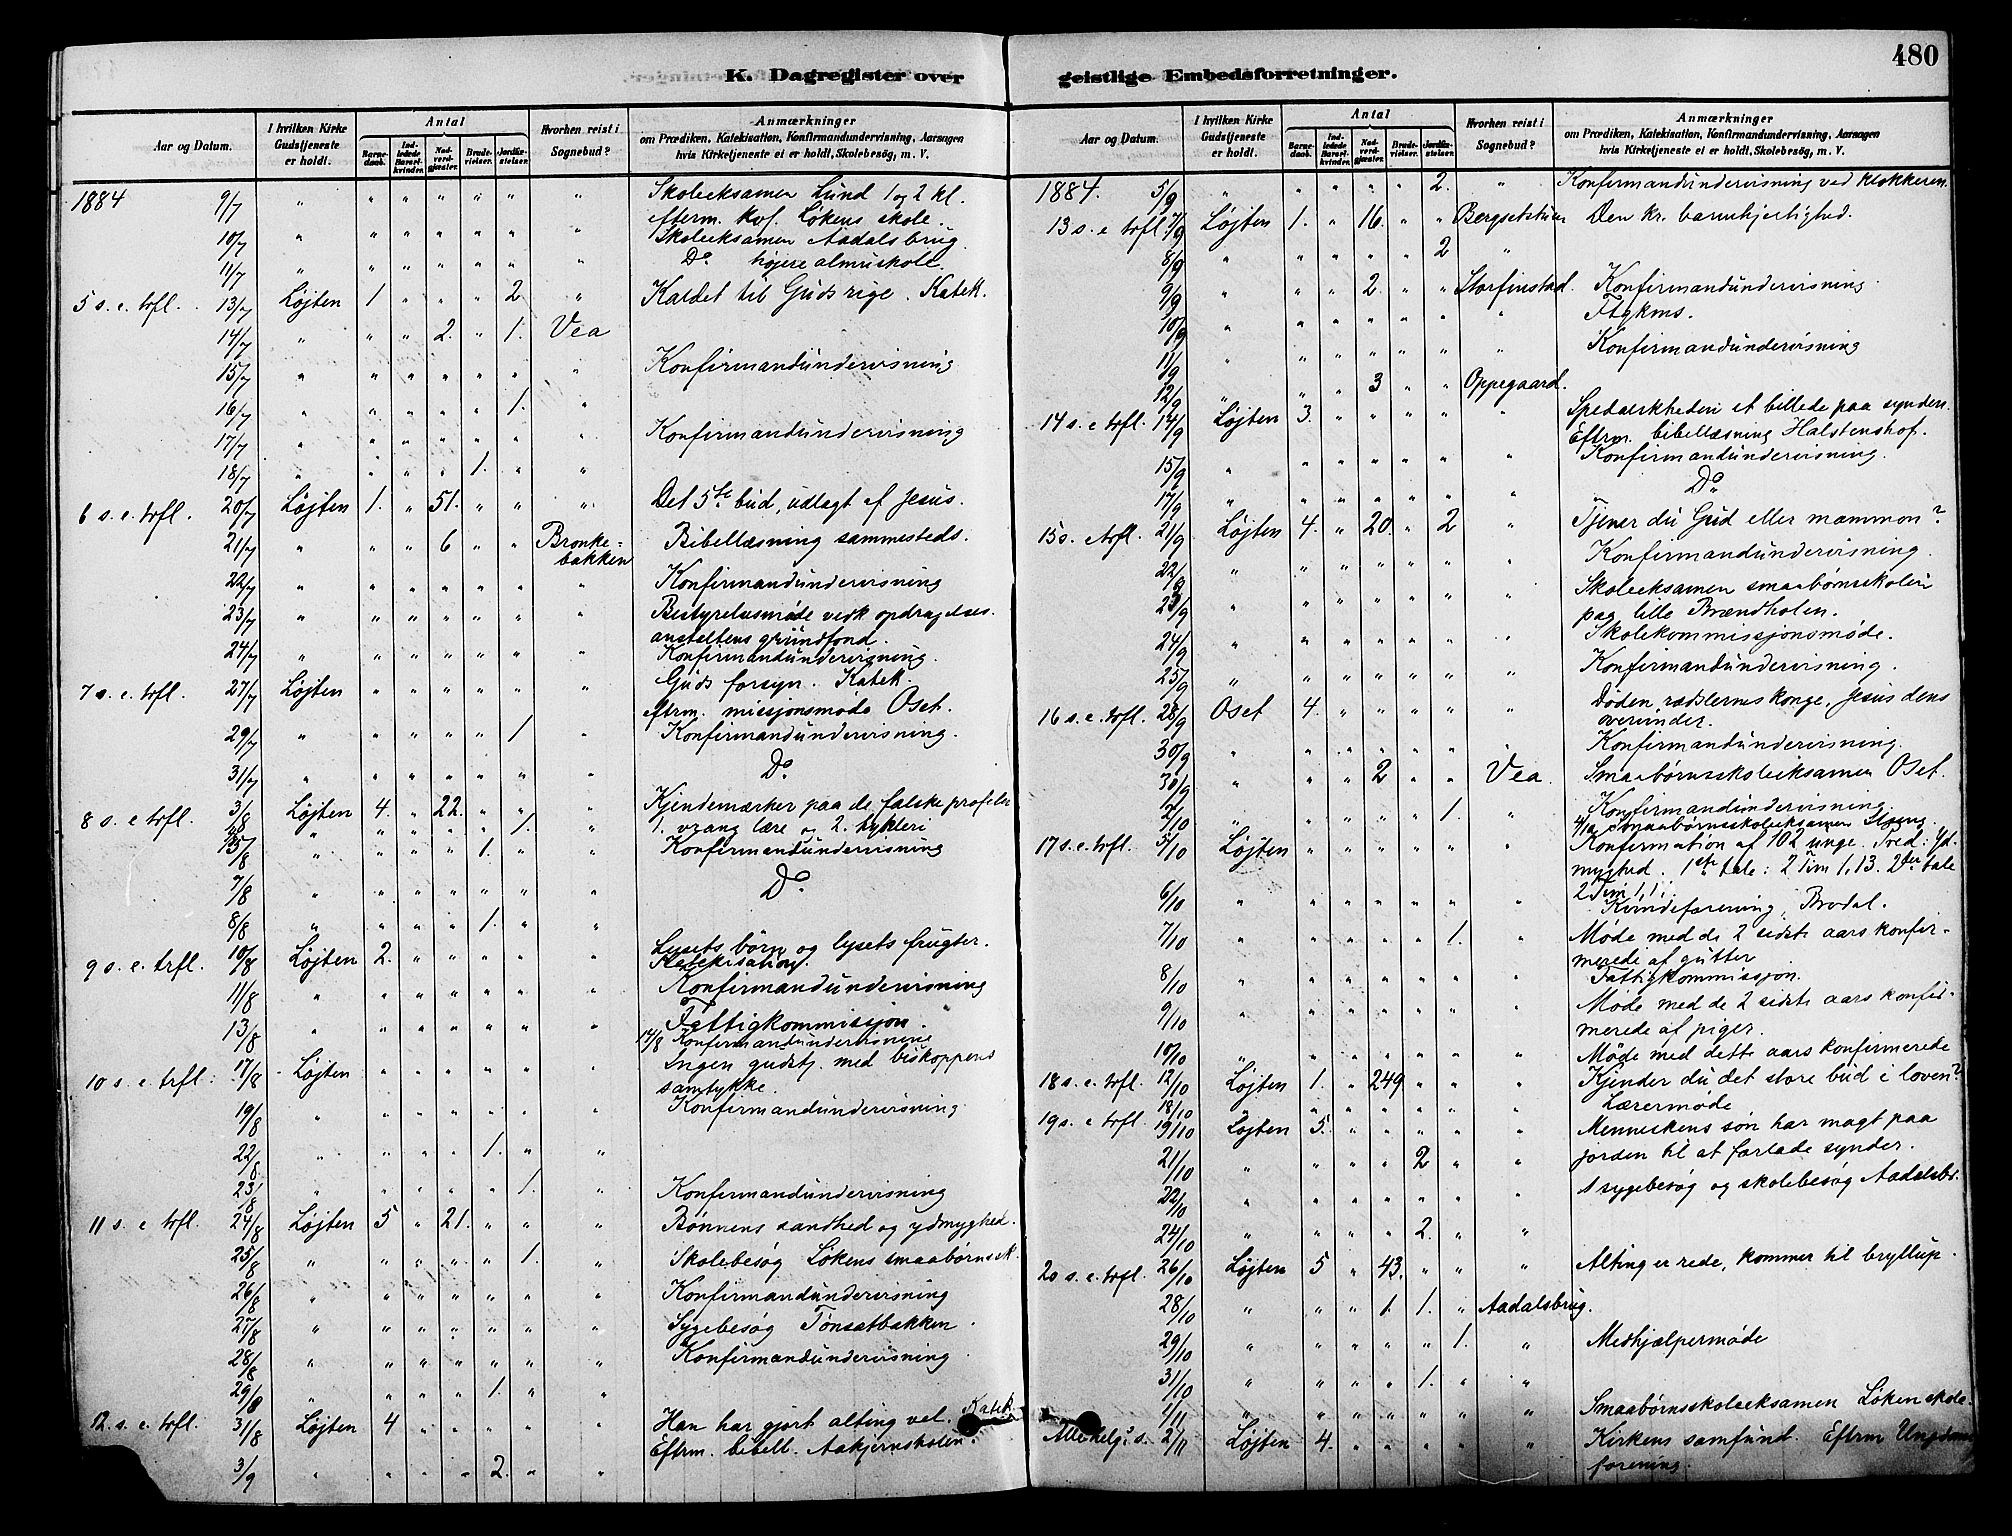 480
K. Dagregister over geistlige Embedsforretninger.
Aar og Datum. | I hvilken Kirke Gudstjeneste er holdt. | Antal | Barnedaab. | Indledede Barselkvinder. | Nadverdgjæster. | Brudevielser. | Jordfæstelser. | Hvorhen reist i Sognebud? | Anmærkninger om Prædiken, Katekisation, Konfirmandundervisning, Aarsagen hvis Kirketjeneste ei er holdt, Skolebesög, m. V.
1884 9/7 " " " " " " " Skoleeksamen Lund 1 og 2 kl.
efterm. Kvf. Løkens skole.
10/7 " " " " " " " Skoleeksamen Aadalsbrug
11/7 " " " " " " " Do højere almuskole
5 s. e. trfl. 13/7 Løjten 1 " " " 2 " Kaldet til Guds rige. Katek.
14/7 " " " 2. " 1. Vea
15/7 " " " " " " " Konfirmandundervisning
16/7 " " " " " 1. "
17/7 " " " " " " " Konfirmandundervisning
18/7 " " " " 1. " "
6 s. e. trfl. 20/7 Løjten 1. " 51. " " " Det 5te bud, udlagt af Jesus.
21/7 " " " 6 " " Bronkebakken Bibellæsning sammesteds.
22/7 " " " " " " " Konfirmandundervisning
23/7 " " " " " " " Bestyrelsesmøde vedk opdragelses-
anstaltens grundfond.
24/7 " " " " " " " Konfirmandundervisning.
7 s. e. trfl. 27/7 Løjten " " " " " " Guds forsyn. Katek.
eftrm. missjonsmøde Oset.
29/7 " " " " " 1 " Konfirmandundervisning.
31/7 " " " " " " " Do
8 s. e. trfl. 3/8 Løjten 4. " 22. " " " Kjendemærker paa de falske profeter
" " " " " 1. " 1. vrang lære og 2. hykleri
5/8 " " " " 1. " " Konfirmandundervisning
7/8 " " " " " " " Do
8/8 " " " " 1. " "
9 s. e. trfl. 10/8 Løjten 2. " " " " " Lysets børn og lysets frugter.
Katekisation.
11/8 " " " " " " " Konfirmandundervisning
13/8 " " " " " " " Fattigkommissjon.
14/8 Konfirmandundervisning
10 s. e trfl. 17/8 Løjten " " " " " " Ingen gudstj. med biskoppens
samtykke.
19/8 " " " " " " " Konfirmandundervisning
22/8 " " " " 1. " "
23/8 " " " " " 1. " Konfirmandundervisning
11 s. e trfl. 24/8 Løjten 5 " 21. " " " Bønnens sandhed og ydmyghed.
25/8 " " " " " 1. " Skolebesøg Løkens smaabørnssk.
26/8 " " " " " " " Konfirmandundervisning
27/8 " " " " " " " Sygebesøg Tønsætbakken.
28/8 " " " " " " " Konfirmandundervisning
29/8 " " " " 1. " "
12. s. e. trfl. 31/8 Løjten 4 " " " " " Han har gjort alting vel. Katek.
Eftrm. bibell. Aakjernskolen.
3/9 " " " " 2. " "
K. Dagregister over geistlige Embedsforretninger.
Aar og Datum. | I hvilken Kirke Gudstjeneste er holdt. | Antal | Barnedaab. | Indledede Barselkvinder. | Nadverdgjæster. | Brudevielser. | Jordfæstelser. | Hvorhen reist i Sognebud? | Anmærkninger om Prædiken, Katekisation, Konfirmandundervisning, Aarsagen hvis Kirketjeneste ei er holdt, Skolebesög, m. V.
1884. 5/9 " " " " " 2. " Konfirmandundervisning ved klokkeren.
13 s. e trfl. 7/9 Løjten 1. " 16. " " Bergsetstuen Den kr. barmhjertighed.
8/9 " " " " " 2 "
9/9 " " " 2. " " Storfinstad. Konfirmandundervisning
10/9 " " " " " " " Ftgkms.
11/9 " " " " " " " Konfirmandundervisning
12/9 " " " 3 " " Oppegaard.
14 s. e trfl. 14/9 Løjten 3. " " " " " Spedalskheden et billede paa synden.
Eftrm. bibellæsning Halstenshof.
15/9 " " " " " " " Konfirmandundervisning.
17/9 " " " " " " " Do
15 s. e trfl. 21/9 Løjten 4. " 20. " 2 " Tjener du Gud eller mammon?
22/9 " " " " " " " Konfirmandundervisning.
23/9 " " " " " " " Skoleeksamen smaabørnsskolen
paa lille Brændholen.
24/9 " " " " " " " Skolekommissjonsmøde.
25/9 " " " " " " " Konfirmandundervisning.
16 s. e. trfl. 28/9 Oset 4. " " " " " Døden rædslernes konge, Jesus dens
overvinder.
30/9 " " " " " " " Konfirmandundervisning.
30/9 " " " 2 " " Vea. Smaabørnsskoleeksamen Oset.
2/10 " " " " " 1. " Konfirmandundervisning.
4/10 Smaabørnsskoleeksamen
17 s. e. trfl. 5/10 Løjten " " " " " " Konfirmation af 102 unge. Præd: Yd-
myghed. 1ste tale: 2 Tim 1,13. 2den tale
2 Tim 1,1
6/10 " " " " " " " Kvindeforening, Brodal.
7/10 " " " " " 1. " Møde med de 2 sidste aars konfir-
merede af gutter
8/10 " " " " " " " Fattigkommissjon.
9/10 " " " " " " " Møde med de 2 sidste aars konfir-
merede af piger.
10/10 " " " " " " " Møde med dette aars konfirmerede
18 s. e trfl. 12/10 Løjten 1. " 249 " " " Kjender du det store bud i loven?
18/10 " " " " " " " Lærermøde
19 s. e trfl. 19/10 Løjten 5. " " " " " Menneskens søn har magt paa
21/10 " " " " 2 " " jorden til at forlade synder.
22/10 " " " " " " " 1 sygebesøg og skolebesøg Aadalsbr.
24/10 " " " " 2. " "
20 s. e. trfl. 26/10 Løjten 5 " 43. " " " Alting er rede, kommer til bryllup.
28/10 " " " 1. 1. " Aadalsbrug.
29/10 " " " " " 1. " Medhjælpermøde
31/10 " " " " 1. " "
1/11 " " " " " " " Smaabørnsskoleeksamen Løken skole
Allehelg. s. 2/11 Løjten 4. " " " " " Kirkens samfund. Eftrm Ungdoms
forening.